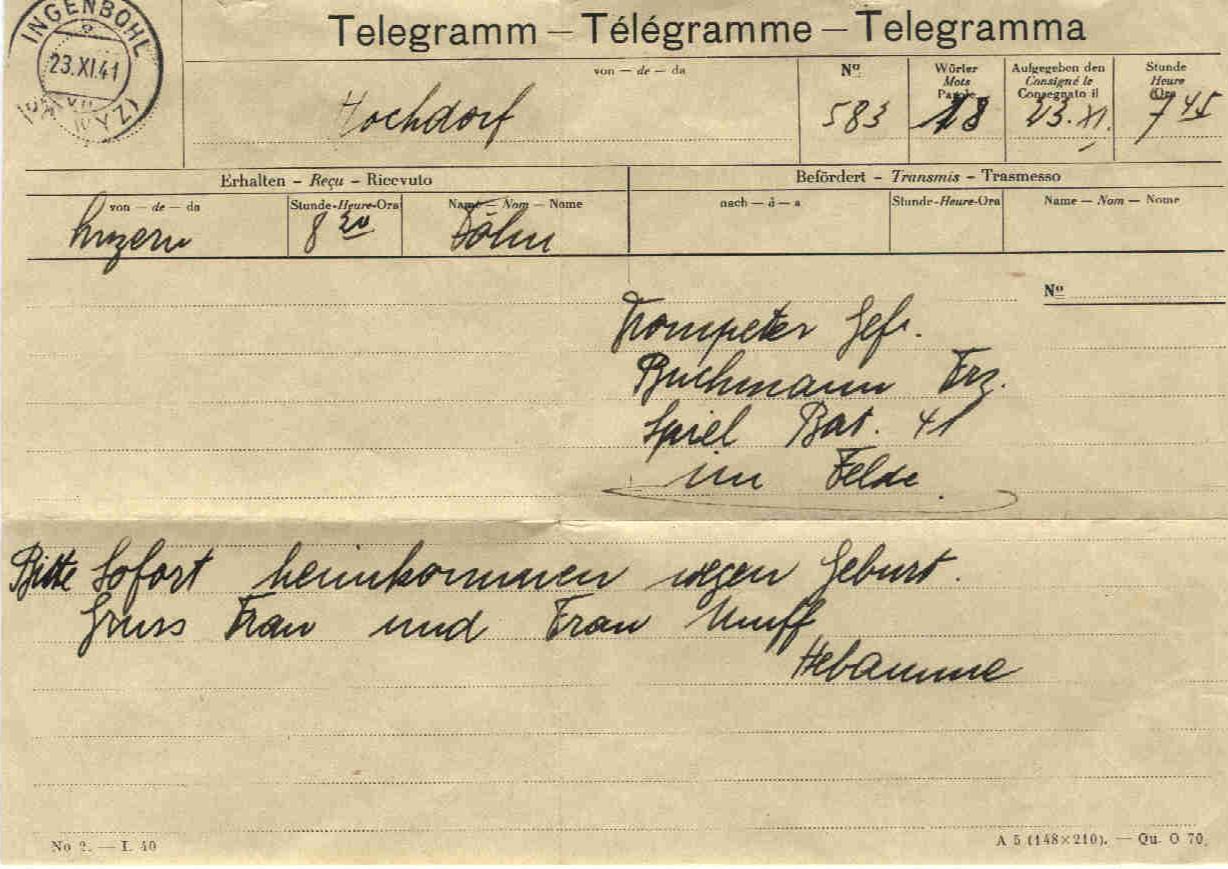 INGENBOHL
23.XI.41
(SCHWYZ)
Telegramm – Télégramme – Telegramma
von – de – da
Hochdorf
Nº
583
Wörter
Mots
Parole
18
Aufgegeben den
Consigné le
Consegnato il
23. XI.
Stunde
Heure
Ora
7 45
Erhalten – Reçu – Ricevuto
Befördert – Transmis – Trasmesso
von – de – da
Luzern
Stunde-Heure-Ora
8 20
Name – Nom – Nome
nach – à – a
Stunde-Heure-Ora
Name – Nom – Nome
Nº
Trompeter Gefr.
Buchmann Frz.
Spiel Bat. 41
im Felde.
Bitte Sofort heimkommen wegen Geburt.
Gruss Frau und Frau Muff
Hebamme
No 2. — I. 40
A 5 (148×210). — Qu. O 70.